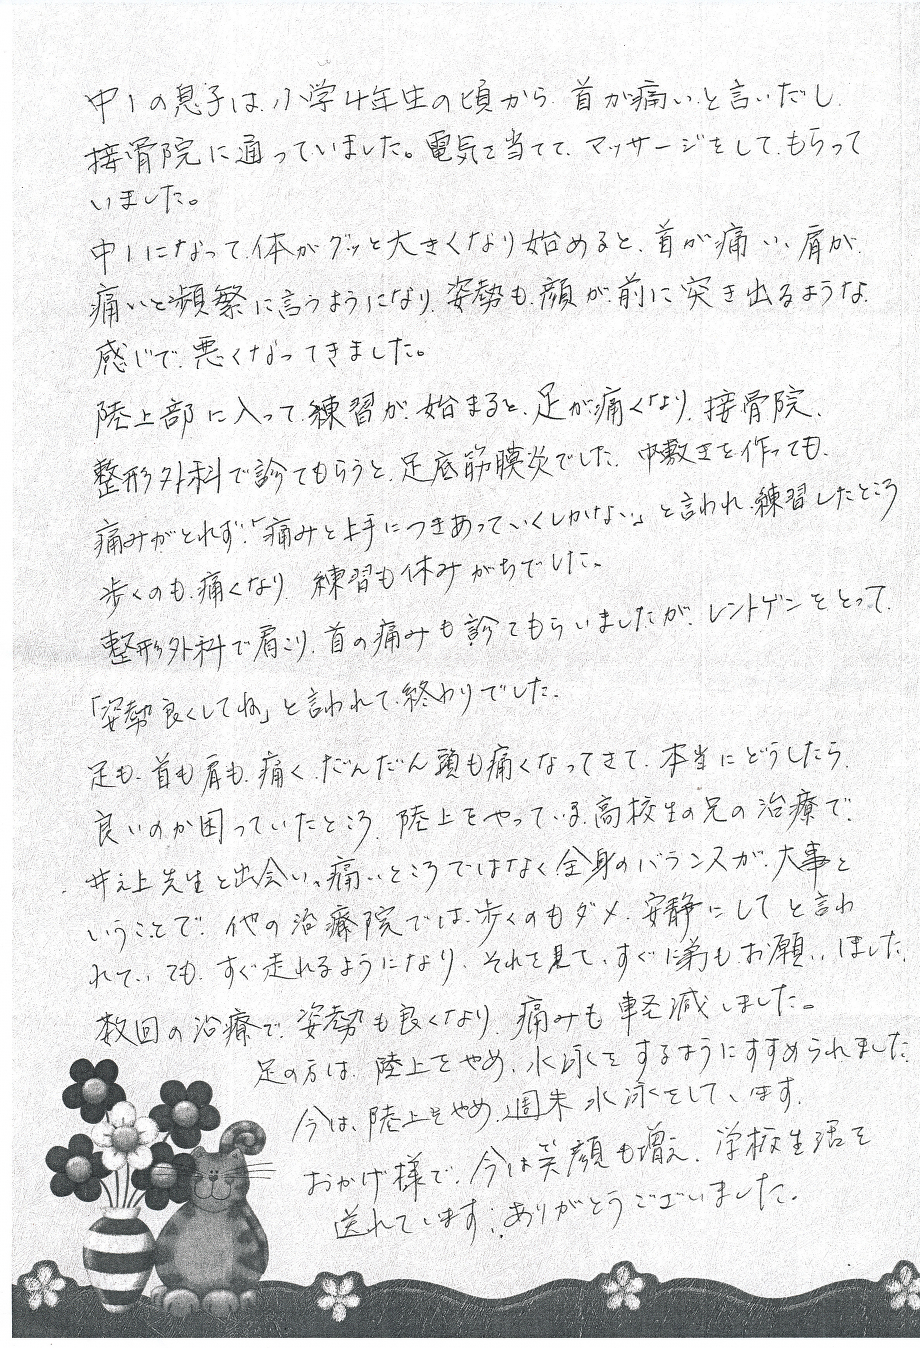 中1の息子は、小学4年生の頃から、首が痛いと言いだし、
接骨院に通っていました。電気を当てて、マッサージをして、もらって
いました。
中1になって、体がグッと大きくなり始めると、首が痛い、肩が、
痛いと頻繁に言うようになり、姿勢も、顔が、前に突き出るような、
感じで、悪くなってきました。
陸上部に入って、練習が、始まると、足が痛くなり、接骨院、
整形外科で診てもらうと、足底筋膜炎でした。中敷きを作っても、
痛みがとれず、「痛みと上手につきあっていくしかない」と言われ、練習したところ
歩くのも、痛くなり、練習も休みがちでした。
整形外科で肩こり、首の痛みも診てもらいましたが、レントゲンをとって、
「姿勢良くしてね」と言われて、終わりでした。
足も、首も肩も、痛く、だんだん頭も痛くなってきて、本当にどうしたら、
良いのか困っていたところ、陸上をやっている、高校生の兄の治療で、
井之上先生と出会い、痛いところではなく全身のバランスが、大事と
いうことで、他の治療院では、歩くのもダメ、安静にしてと言わ
れていても、すぐ走れるようになり、それを見て、すぐに弟も、お願いしました。
数回の治療で、姿勢も良くなり、痛みも軽減しました。
足の方は、陸上をやめ、水泳をするようにすすめられました。
今は、陸上をやめ、週末水泳をしています。
おかげ様で、今は笑顔も増え、学校生活を
送れています。ありがとうございました。